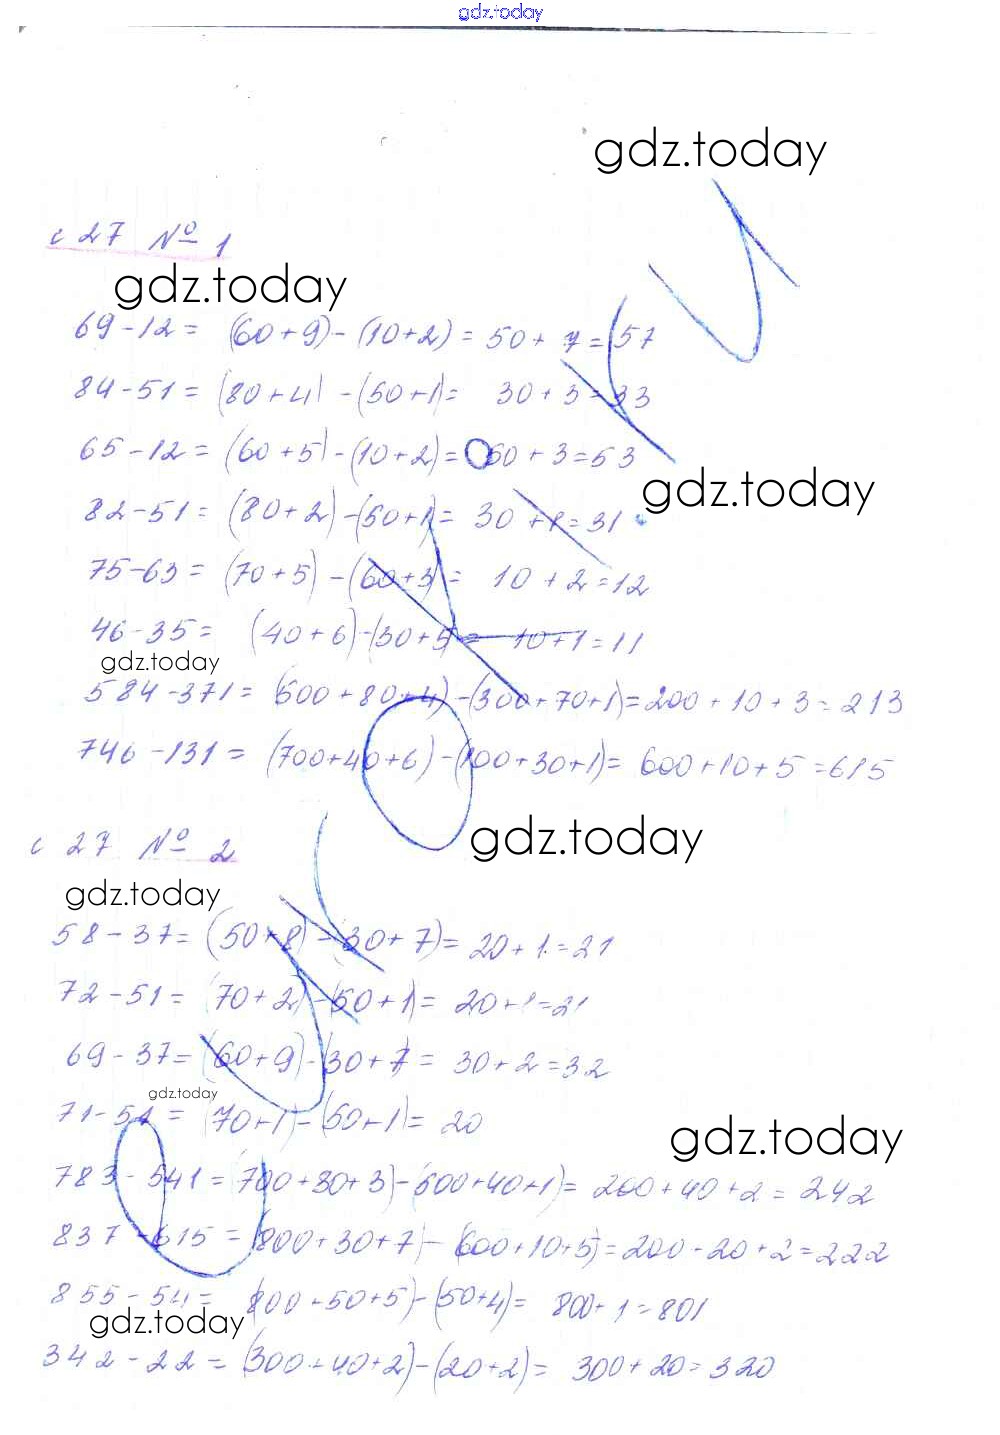 gdz.today
gdz.today
с 27 № 1
gdz.today
69-12= (60+9)-(10+2)= 50+7=57
84-51= (80+4)-(50+1)= 30+3=33
65-12= (60+5)-(10+2)= 50+3=53
gdz.today
82-51= (80+2)-(50+1)= 30+1=31
75-63= (70+5)-(60+3)= 10+2=12
46-35= (40+6)-(30+5)= 10+1=11
gdz.today
584-371= (500+80+4)-(300+70+1)=200+10+3=213
746-131= (700+40+6)-(100+30+1)= 600+10+5=615
с 27 № 2
gdz.today
gdz.today
58-37= (50+8)-(30+7)= 20+1=21
72-51= (70+2)-(50+1)= 20+1=21
69-37= (60+9)-(30+7)= 30+2=32
gdz.today
71-51= (70+1)-(50+1)= 20
gdz.today
783-541= (700+80+3)-(500+40+1)= 200+40+2=242
837-615= (800+30+7)-(600+10+5)=200+20+2=222
855-54= (800+50+5)-(50+4)= 800+1=801
gdz.today
342-22= (300+40+2)-(20+2)= 300+20=320